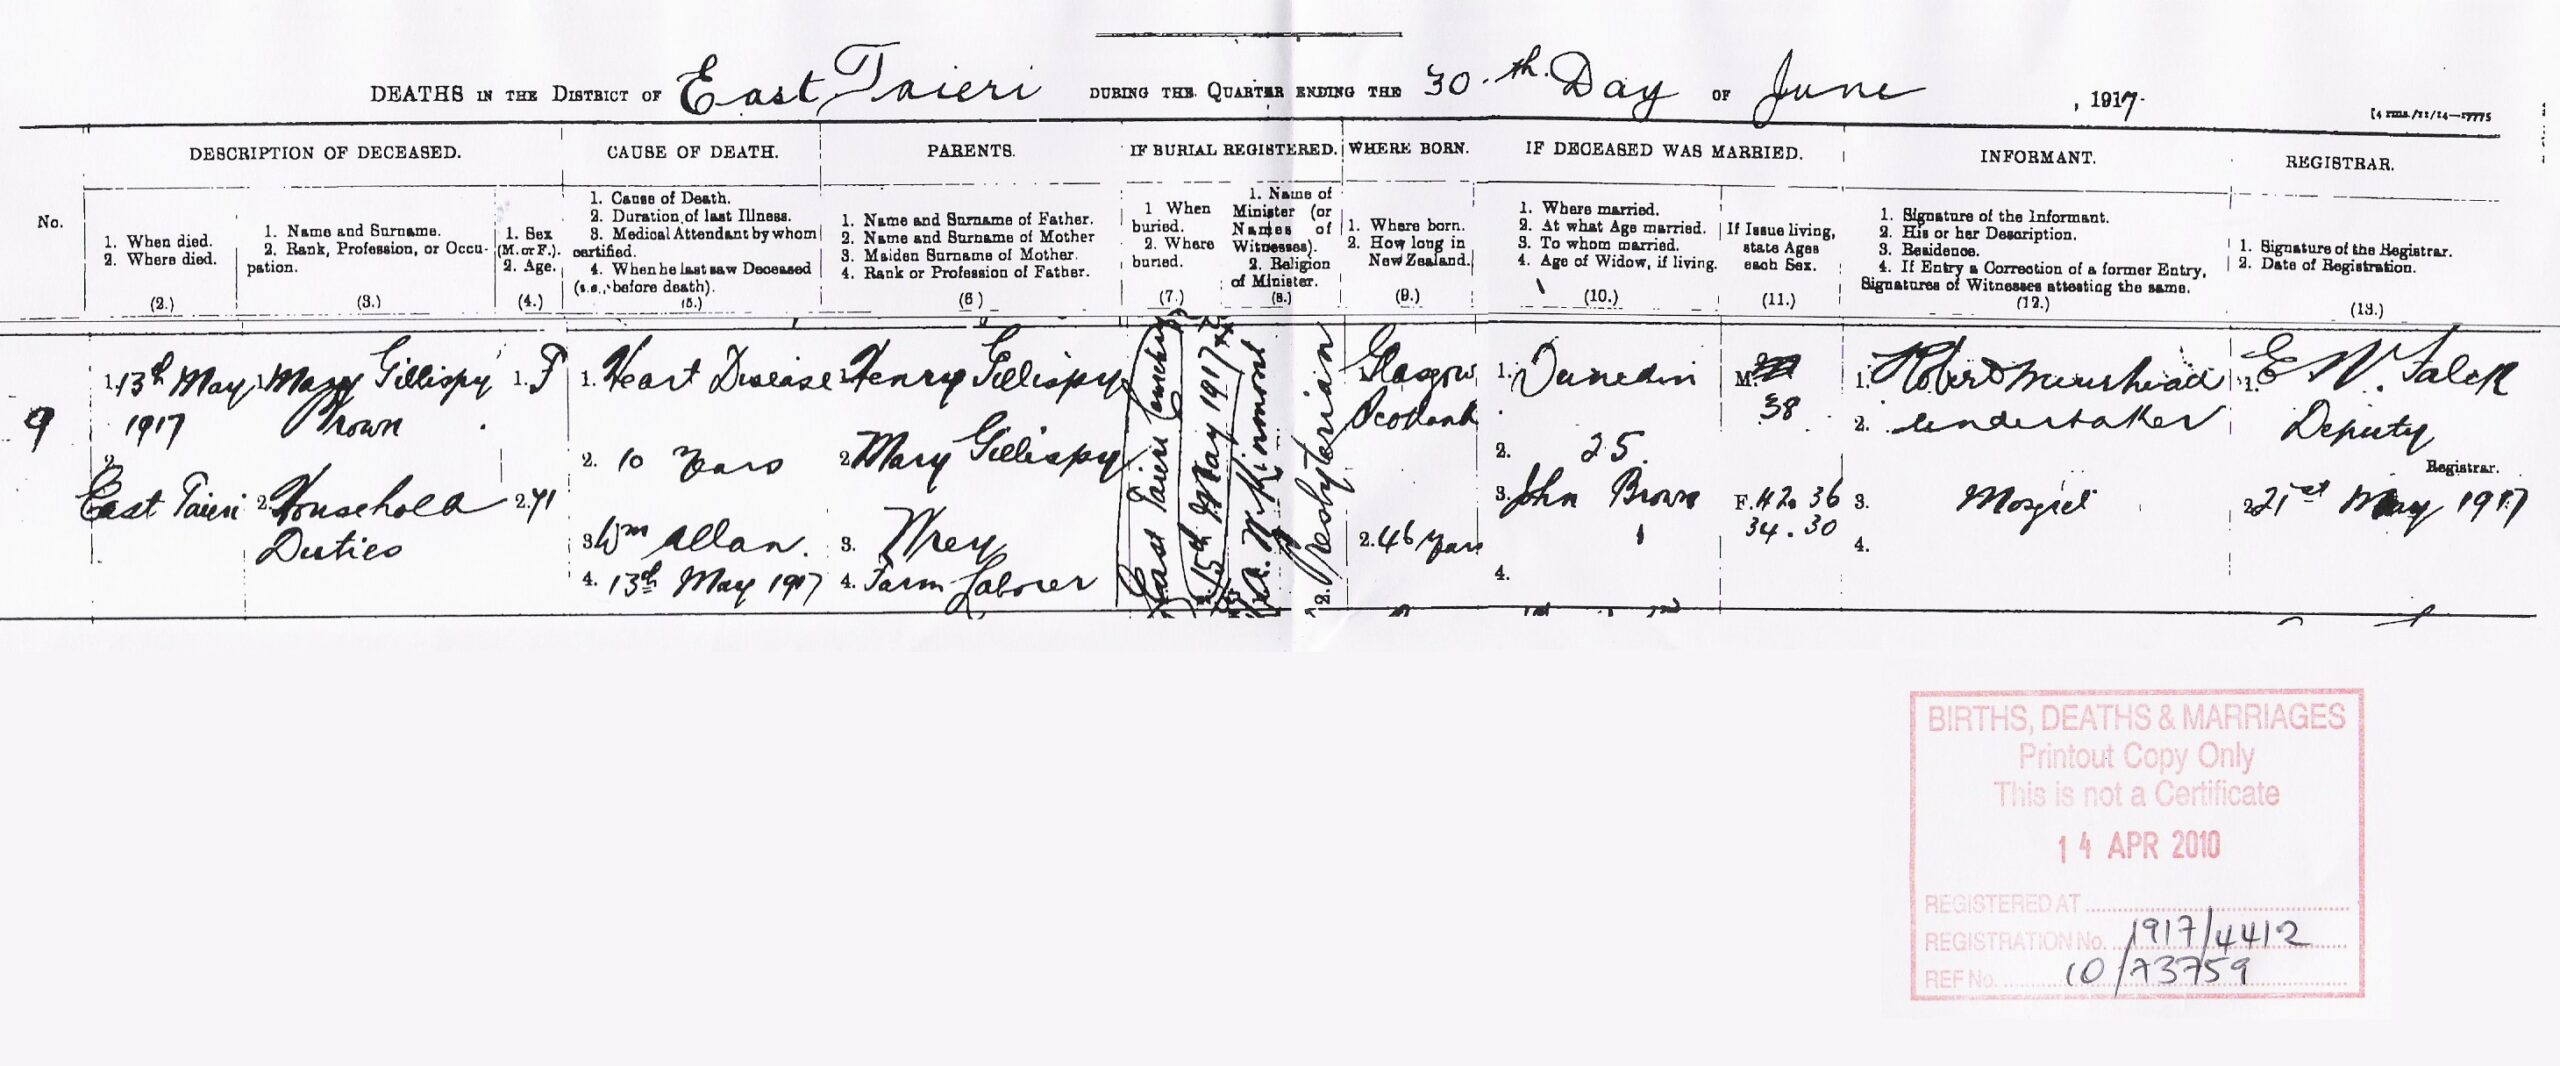 DEATHS IN THE DISTRICT OF East Taieri DURING THE QUARTER ENDING THE 30.th. Day OF June , 1917.
[4 rms./11/14—17775
DESCRIPTION OF DECEASED. CAUSE OF DEATH. PARENTS. IF BURIAL REGISTERED. WHERE BORN. IF DECEASED WAS MARRIED. INFORMANT. REGISTRAR.
No.
1. When died.
2. Where died.
(2.)
1. Name and Surname.
2. Rank, Profession, or Occu-
pation.
(3.)
1. Sex
(M. or F.).
2. Age.
(4.)
1. Cause of Death.
2. Duration of last Illness.
3. Medical Attendant by whom
certified.
4. When he last saw Deceased
(i.e., before death).
(5.)
1. Name and Surname of Father.
2. Name and Surname of Mother
3. Maiden Surname of Mother.
4. Rank or Profession of Father.
(6)
1 When
buried.
2. Where
buried.
(7.)
1. Name of
Minister (or
Names of
Witnesses).
2. Religion
of Minister.
(8.)
1. Where born.
2. How long in
New Zealand.
(9.)
1. Where married.
2. At what Age married.
3. To whom married.
4. Age of Widow, if living.
(10.)
If Issue living,
state Ages
each Sex.
(11.)
1. Signature of the Informant.
2. His or her Description.
3. Residence.
4. If Entry a Correction of a former Entry,
Signatures of Witnesses attesting the same.
(12.)
1. Signature of the Registrar.
2. Date of Registration.
(13.)
9
1. 13th May
1917
2.
East Taieri
1. Mary Gillispy
Brown
2. Household
Duties
1. F
2. 71
1. Heart Disease
2. 10 years
3. Wm Allan.
4. 13th May 1917
1. Henry Gillispy
2. Mary Gillispy
3. Wrey
4. Farm Laborer
1. 15th May 1917
2. East Taieri Cemetery
1. W. Kinmont
2. Presbyterian
Glasgow
Scotland
2. 46 years
1. Dunedin
2. 25.
3. John Brown
4.
M.
38
F. 42. 36
34. 30
1. Robert Muirhead
2. Undertaker
3. Mosgiel
4.
1. E W. Falck
Deputy
Registrar.
2. 21st May 1917
BIRTHS, DEATHS & MARRIAGES
Printout Copy Only
This is not a Certificate
14 APR 2010
REGISTERED AT
REGISTRATION No. 1917/4412
REF No. 10/73759